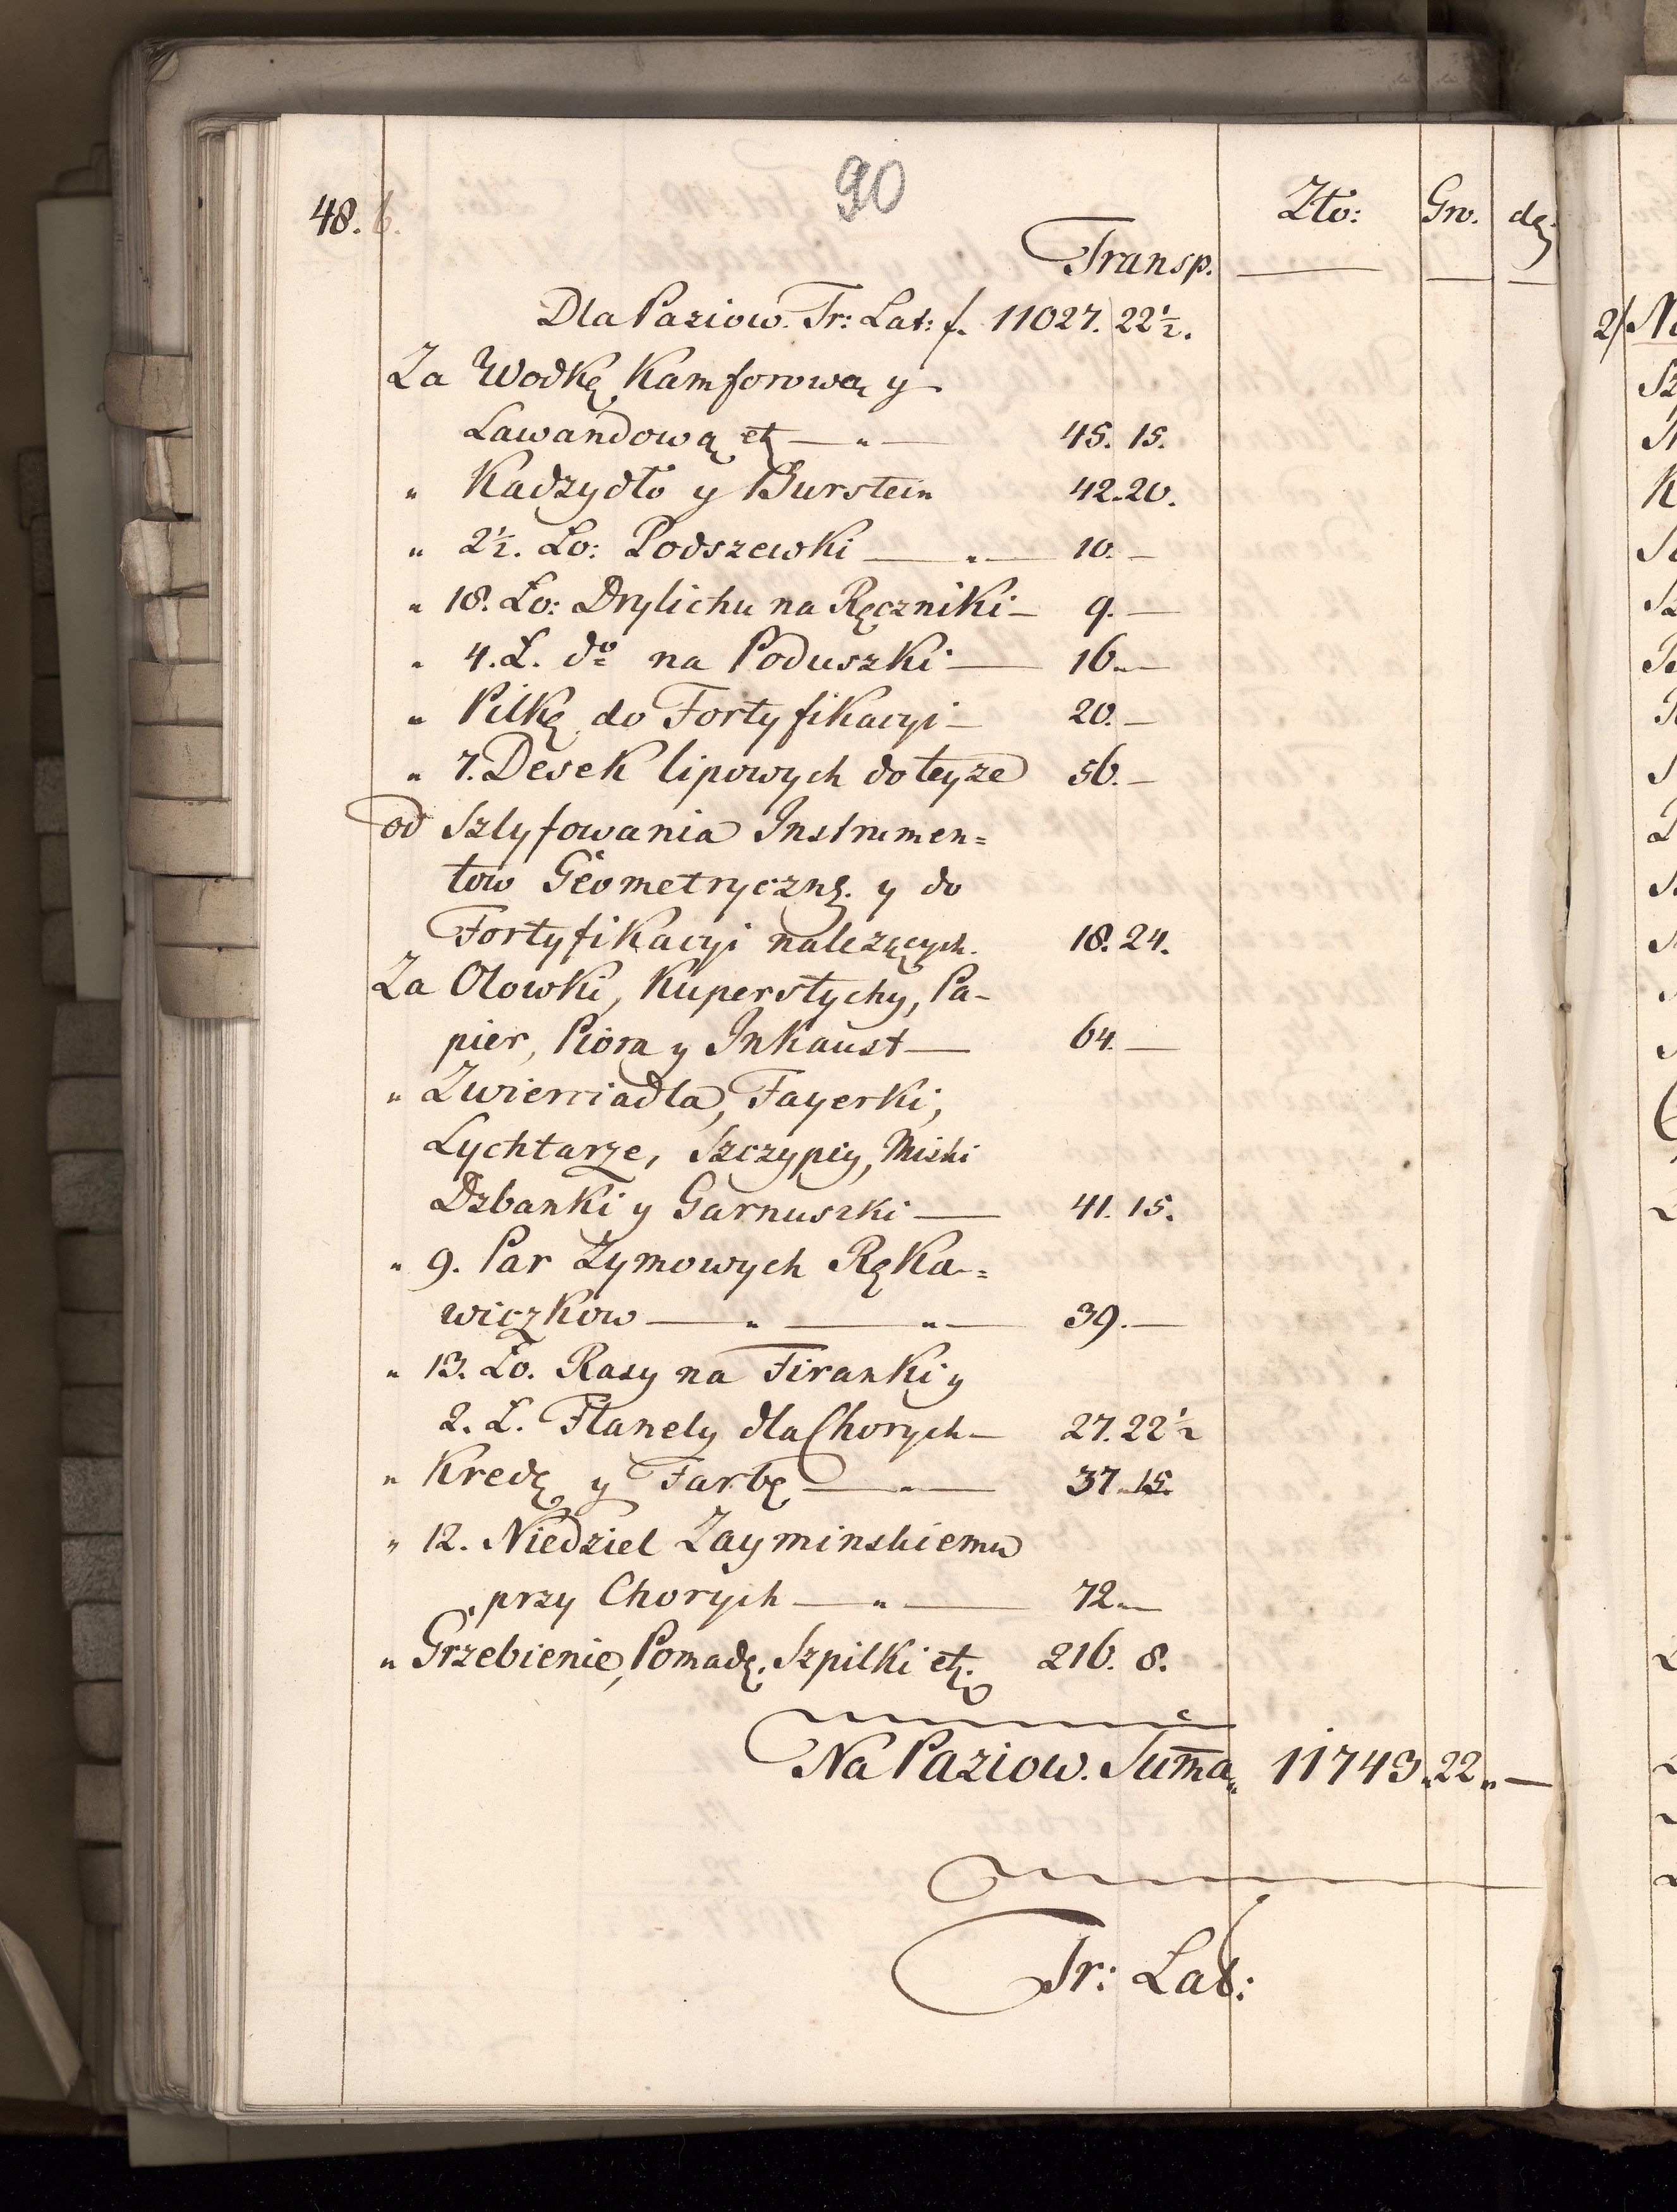 90
48. 6.
Zło: Gro. dę:
Transp.
Dla Paziow. Tr: Lat: f. 11027. 22½.
Za Wodkę Kamforową y
Lawandową etz — „ — 45. 15.
„ Kadzydło y Burstein 42. 20.
„ 2½. Ło: Podszewki — „ — 10. —
„ 18. Ło: Drylichu na Ręczniki — 9. —
„ 4. Ł. do na Poduszki — 16. —
„ Piłkę do Fortyfikacyi — 20. —
„ 7. Desek lipowych do teyże 56. —
od Szlyfowania Instrumen=
tow Geometryczng. y do
Fortyfikacyi należących. 18. 24.
Za Ołowki, Kupersztychy, Pa-
pier, Pióra y Inkaust — 64. —
„ Zwierciadla, Fayerki,
Lychtarze, Szczypcy, Miski
Dzbanki y Garnuszki — 41. 15.
„ 9. Par Zymowych Ręka=
wiczkow — „ — „ — 39. —
„ 13. Ło. Rasy na Firanki y
2. Ł. Flanely dla Chorych — 27. 22½
„ Kredę y Farbę — „ — 37. 15.
„ 12. Niedziel Zayminskiemu
przy Chorych — „ — 72. —
„ Grzebienie, Pomadę, Szpilki etz. 216. 8.
Na Paziow. Sum̄a „ 11743. „ 22 „ —
Tr: Lat:
2/